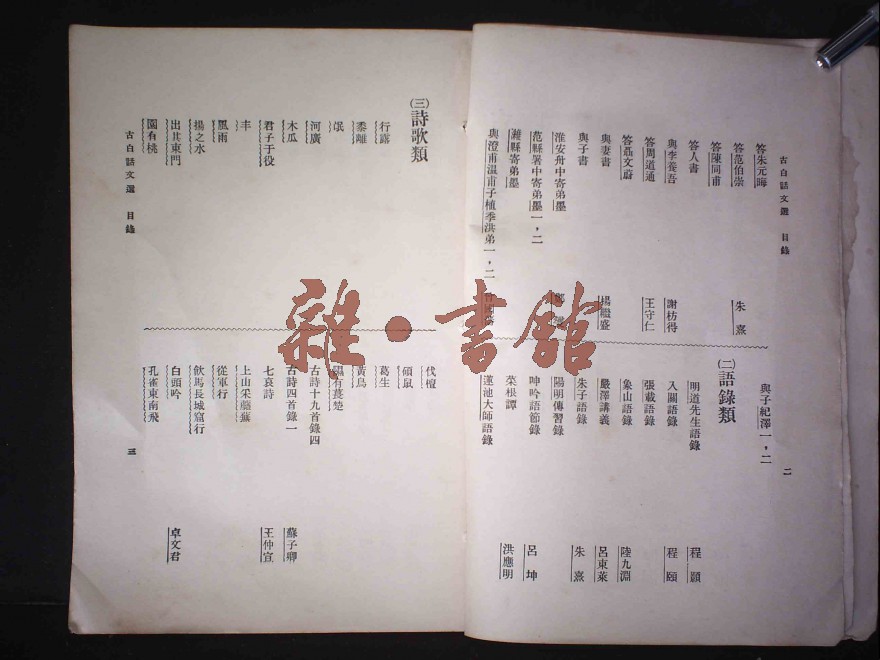 古白話文選 目錄
二
答朱元晦
答范伯崇 朱熹
答陳同甫
答人書
與李養吾 謝枋得
答周道通 王守仁
答聶文蔚
與妻書 楊繼盛
與子書
淮安舟中寄弟墨 鄭
范縣署中寄弟墨一，二
濰縣寄弟墨
與澄甫溫甫子植季洪弟一，二
與子紀澤一，二
(二)語錄類
明道先生語錄 程顥
入關語錄 程頤
張載語錄
象山語錄 陸九淵
嚴澤講義 呂東萊
朱子語錄 朱熹
陽明傳習錄
呻吟語節錄 呂坤
菜根譚 洪應明
蓮池大師語錄
(三)詩歌類
行露
黍離
氓
河廣
木瓜
君子于役
丰
風雨
揚之水
出其東門
園有桃
伐檀
碩鼠
葛生
黃鳥
隰有萇楚
古詩十九首錄四
古詩四首錄一 蘇子卿
七哀詩 王仲宣
上山采蘼蕪
從軍行
飲馬長城窟行
白頭吟 卓文君
孔雀東南飛
古白話文選 目錄
三
雜·書館